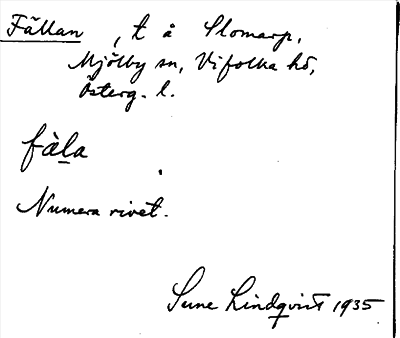 Fällan, t å Slomarp,
Mjölby sn, Vifolka hd,
Österg. l.
fàla
Numera rivet.
Sune Lindqvist 1935